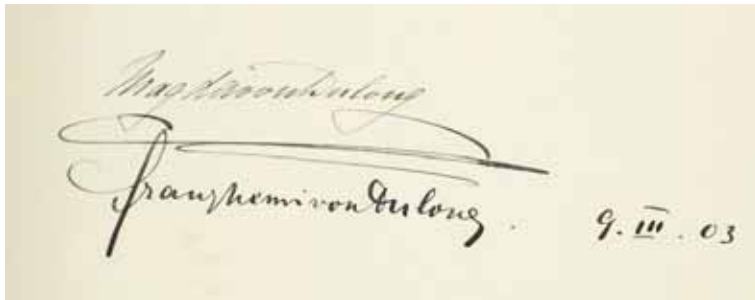 Magda von Dulong
Franz Henri von Dulong. 9. III. 03